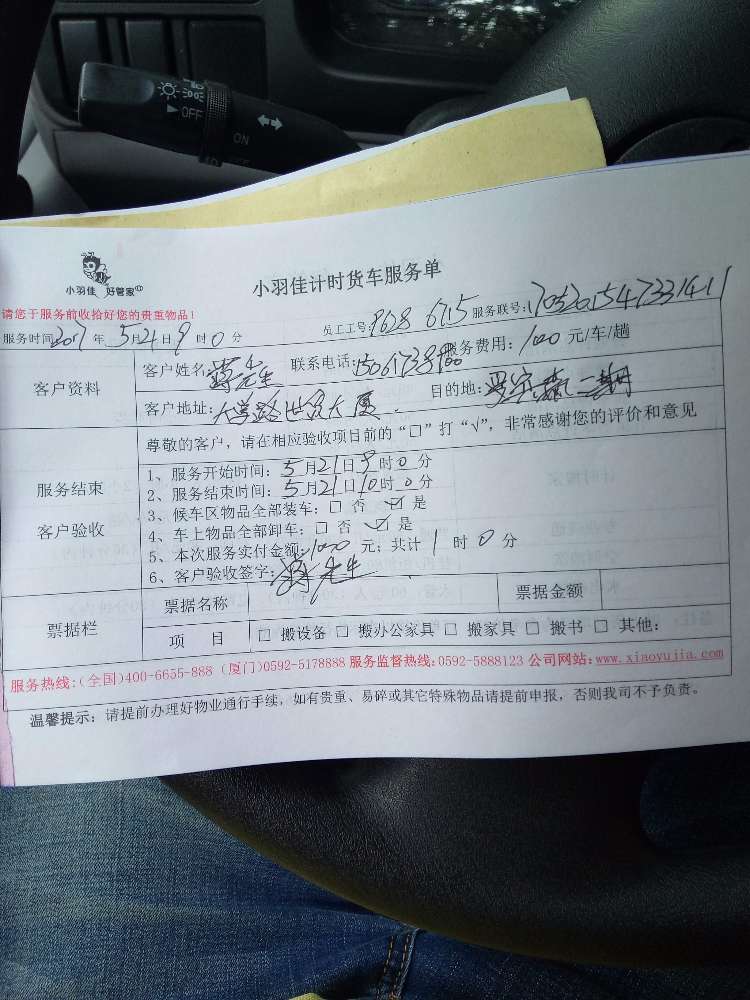 OFF
ON
小羽佳 好管家
小羽佳计时货车服务单
请您于服务前收拾好您的贵重物品!
服务时间2017年 5月21日9时0分 员工工号: 9628 6715 服务联号:
客户资料 客户姓名: 先生 联系电话: 服务费用: 100 元/车/趟
客户地址: 大学路世纪大厦 目的地: 二期
尊敬的客户，请在相应验收项目前的“□”打“√”，非常感谢您的评价和意见
服务结束
客户验收
1、服务开始时间: 5月21日9时0分
2、服务结束时间: 5月21日10时0分
3、候车区物品全部装车: □ 否 ☑ 是
4、车上物品全部卸车: □ 否 ☑ 是
5、本次服务实付金额: 100 元; 共计 1 时 0 分
6、客户验收签字: 先生
票据栏 票据名称 票据金额
项 目 □ 搬设备 □ 搬办公家具 □ 搬家具 □ 搬书 □ 其他:
服务热线:(全国)400-6655-888 (厦门)0592-5178888 服务监督热线:0592-5888123 公司网站:www.xiaoyujia.com
温馨提示: 请提前办理好物业通行手续，如有贵重、易碎或其它特殊物品请提前申报，否则我司不予负责。